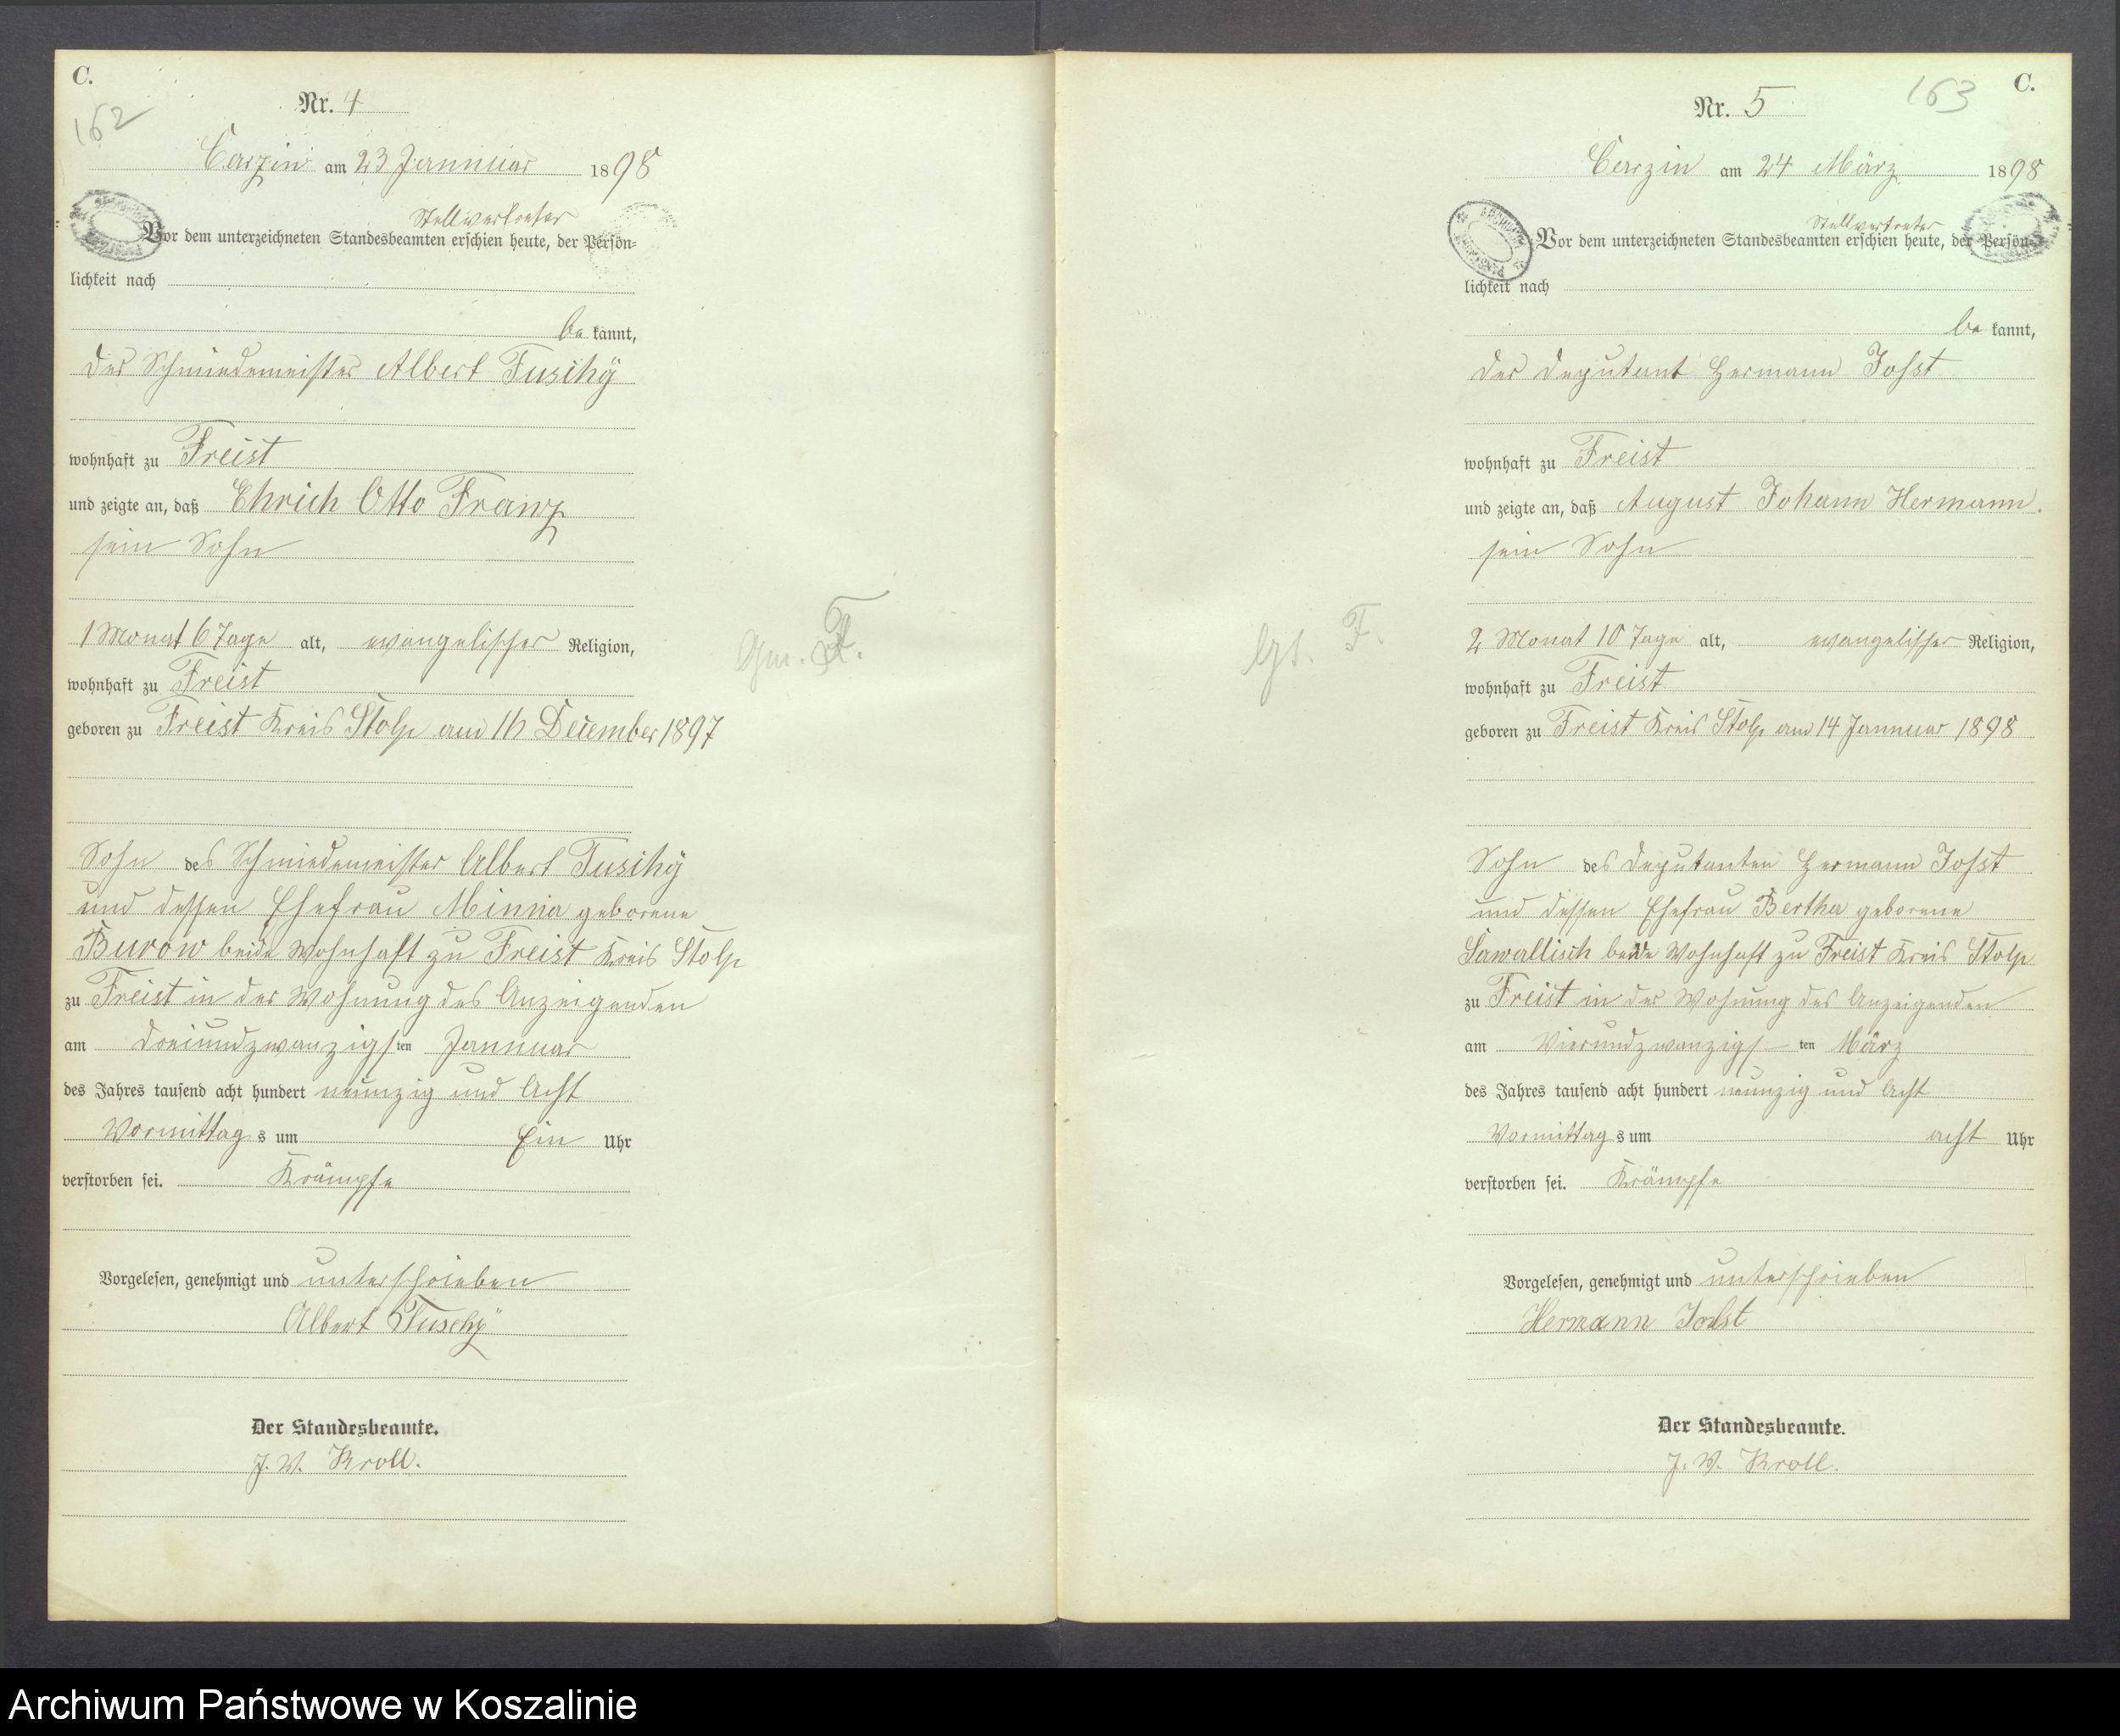 C.
162
Nr. 4
Carzin am 23 Jannuar 1898
Stellvertreter
Vor dem unterzeichneten Standesbeamten erschien heute, der Persön=
lichkeit nach
be kannt,
der Schmiedemeister Albert Tuschÿ
wohnhaft zu Freist
und zeigte an, daß Ehrich Otto Franz
sein Sohn
1 Monat 6 Tage alt, evangelischer Religion,
wohnhaft zu Freist
geboren zu Freist Kreis Stolp am 16 December 1897
Sohn des Schmiedemeister Albert Tuschÿ
und dessen Ehefrau Minna geborene
Burow beide Wohnhaft zu Freist Kreis Stolp
zu Freist in der Wohnung des Anzeigenden
am dreiundzwanzigsten Jannuar
des Jahres tausend acht hundert neunzig und Acht
Vormittags um Ein Uhr
verstorben sei. Krämpfe
Vorgelesen, genehmigt und unterschrieben
Albert Tuschÿ
Der Standesbeamte.
J. V. Kroll.
Gm. F.
163
C.
Nr. 5
Carzin am 24 März 1898
Stellvertreter
Vor dem unterzeichneten Standesbeamten erschien heute, der Persön=
lichkeit nach
be kannt,
der Deputant Hermann Johst
wohnhaft zu Freist
und zeigte an, daß August Johann Hermann.
sein Sohn
2 Monat 10 Tage alt, evangelischer Religion,
wohnhaft zu Freist
geboren zu Freist Kreis Stolp am 14 Jannuar 1898
Sohn des Deputanten Hermann Johst
und dessen Ehefrau Bertha geborene
Sawallisch beide Wohnhaft zu Freist Kreis Stolp
zu Freist in der Wohnung des Anzeigenden
am Vierundzwanzigsten März
des Jahres tausend acht hundert neunzig und Acht
Vormittags um acht Uhr
verstorben sei. Krämpfe
Vorgelesen, genehmigt und unterschrieben
Hermann Johst
Der Standesbeamte.
J. V. Kroll.
F.
Archiwum Państwowe w Koszalinie